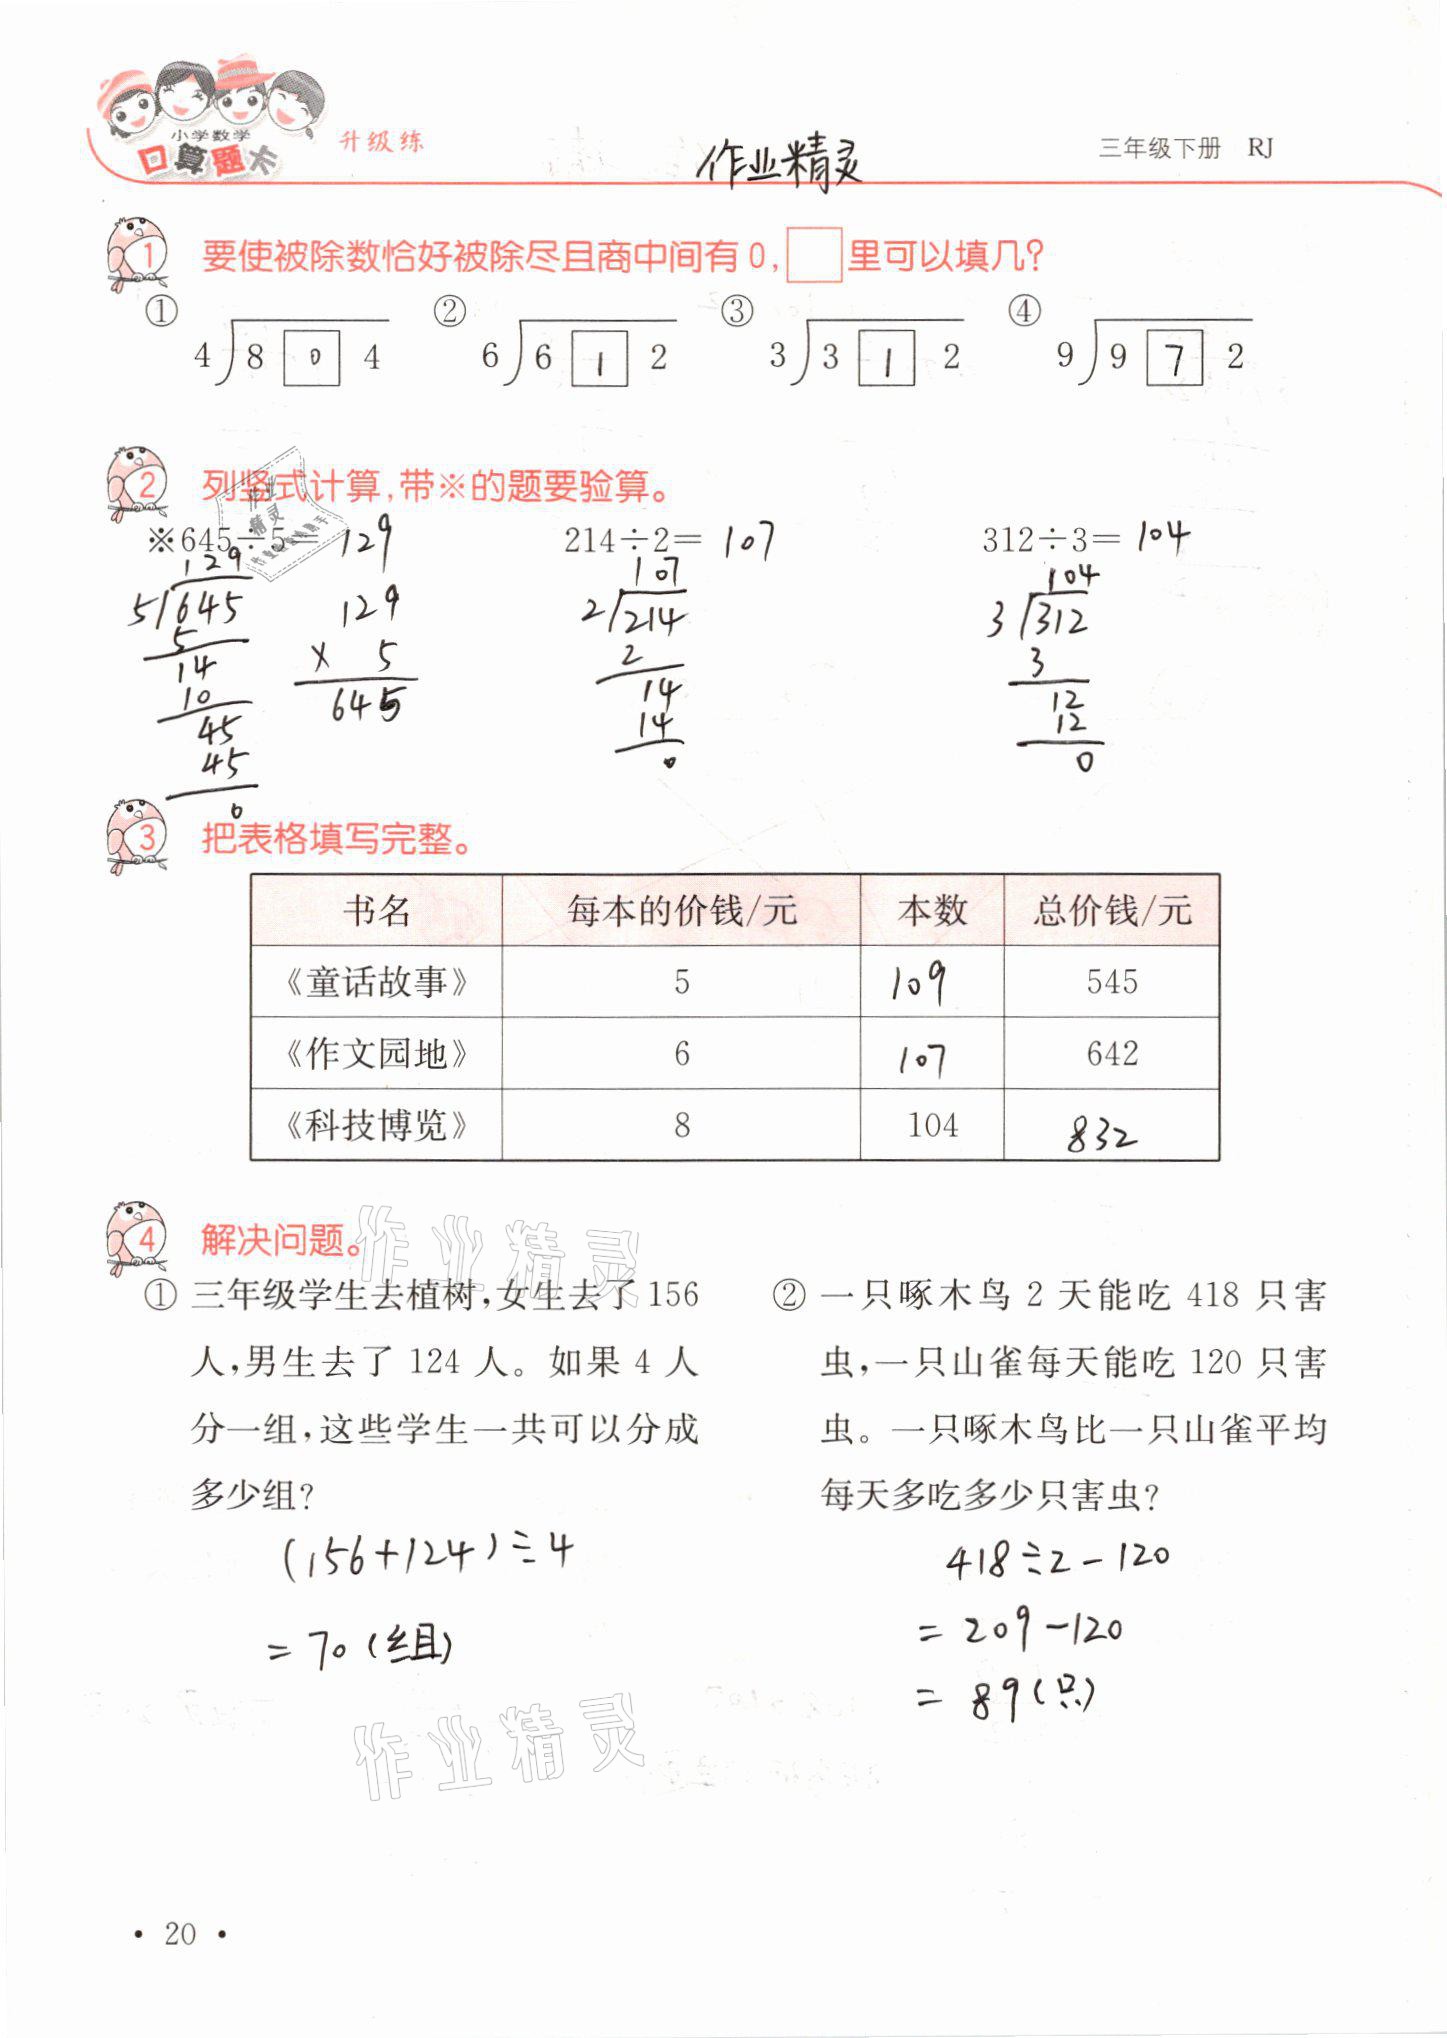 小学数学
口算题卡
升级练
作业精灵
三年级下册 RJ
1 要使被除数恰好被除尽且商中间有0,□里可以填几?
① ② ③ ④
4 8 0 4 6 6 1 2 3 3 1 2 9 9 7 2
2 列竖式计算,带※的题要验算。
※645÷5=129 214÷2=107 312÷3=104
129 107 104
5 645 129 2 214 3 312
5 × 5 2 3
14 645 14 12
10 14 12
45 0 0
45
0
3 把表格填写完整。
书名 每本的价钱/元 本数 总价钱/元
《童话故事》 5 109 545
《作文园地》 6 107 642
《科技博览》 8 104 832
4 解决问题。
① 三年级学生去植树,女生去了156
人,男生去了124人。如果4人
分一组,这些学生一共可以分成
多少组?
(156+124)÷4
=70(组)
② 一只啄木鸟2天能吃418只害
虫,一只山雀每天能吃120只害
虫。一只啄木鸟比一只山雀平均
每天多吃多少只害虫?
418÷2-120
=209-120
=89(只)
作业精灵
作业精灵
·20·